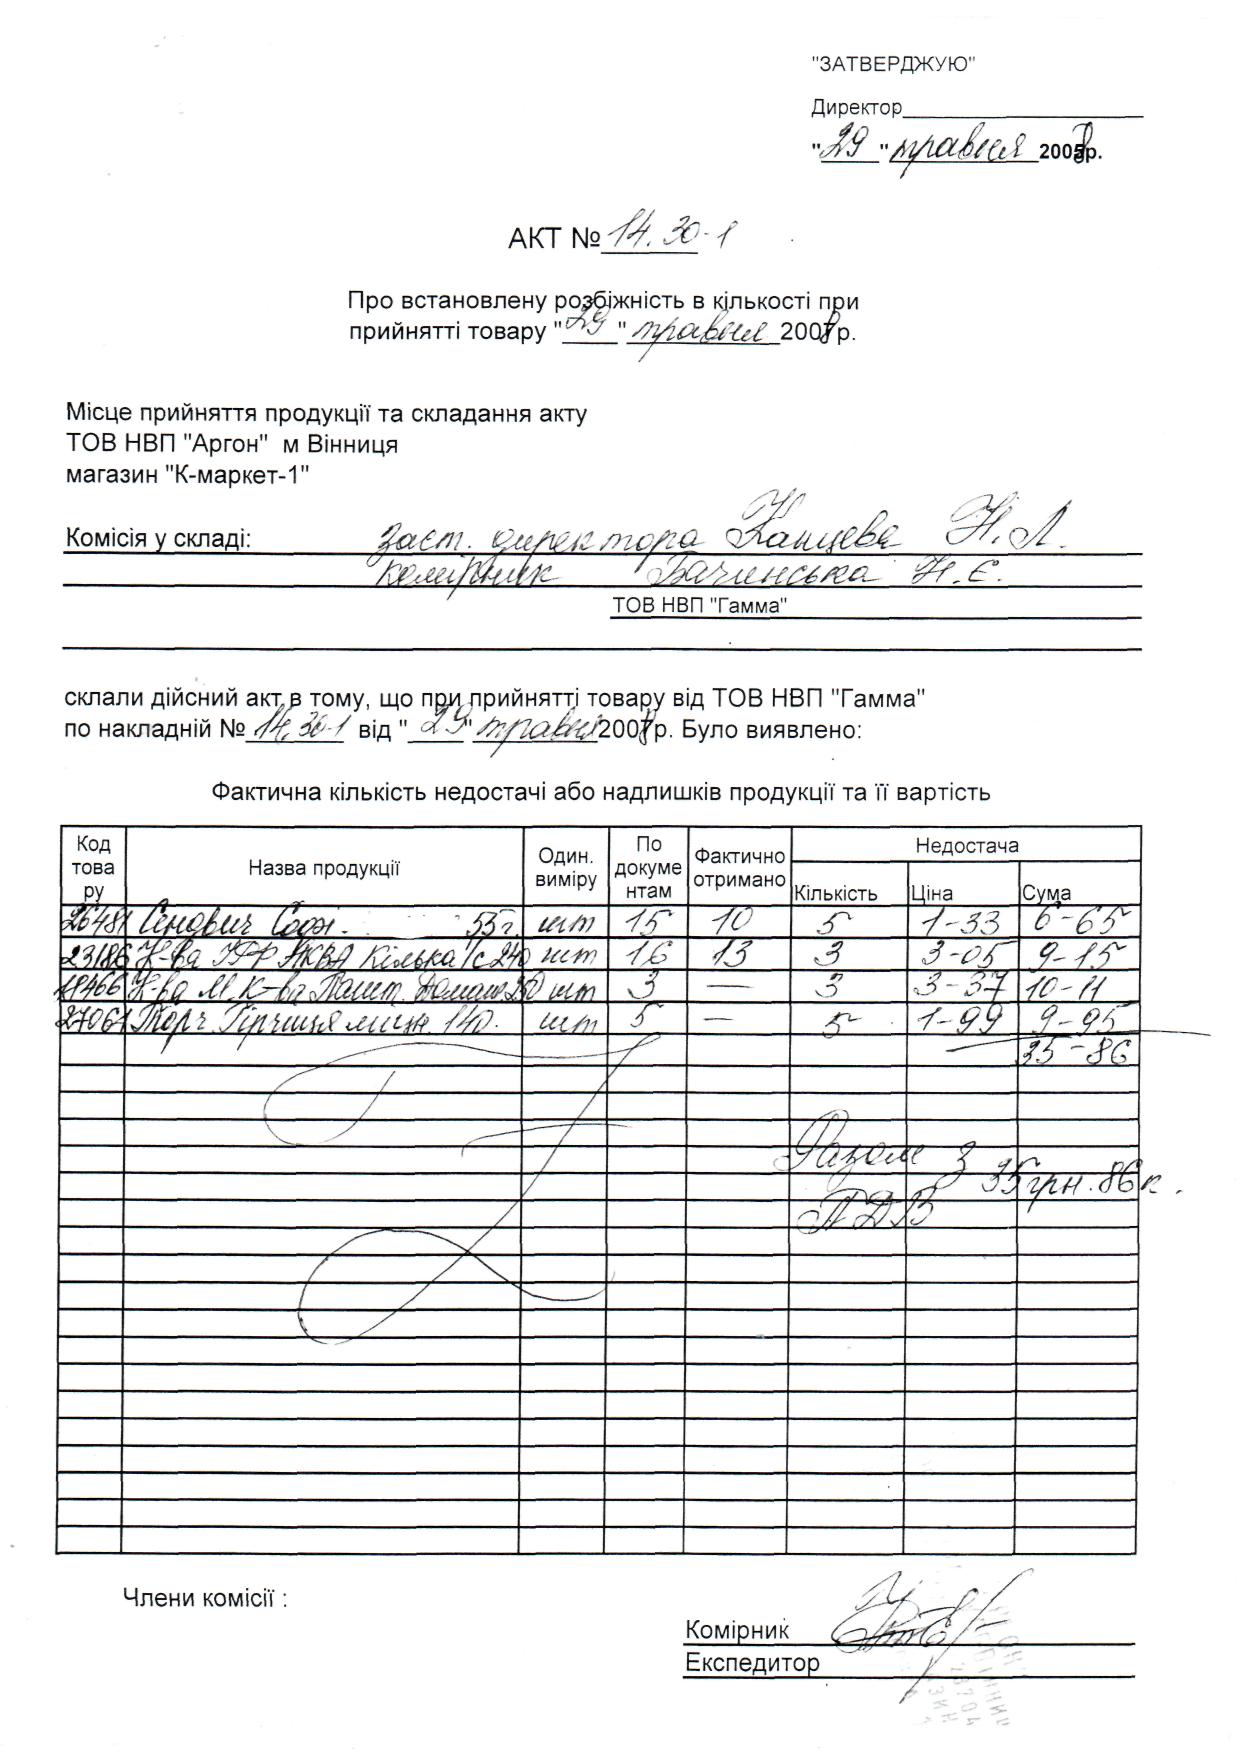 "ЗАТВЕРДЖУЮ"
Директор
"29" травня 2008р.
АКТ № 14.30-1
Про встановлену розбіжність в кількості при
прийнятті товару "29" травня 2008р.
Місце прийняття продукції та складання акту
ТОВ НВП "Аргон" м Вінниця
магазин "К-маркет-1"
Комісія у складі: Заст. директора Канцева Н.Л.
комірник Бачинська Н.Є.
ТОВ НВП "Гамма"
склали дійсний акт в тому, що при прийнятті товару від ТОВ НВП "Гамма"
по накладній № 14.30-1 від "29" травня 2008р. Було виявлено:
Фактична кількість недостачі або надлишків продукції та її вартість
Код това ру Назва продукції Один. виміру По докуме нтам Фактично отримано Недостача
Кількість Ціна Сума
26481 55г. шт 15 10 5 1-33 6-65
23186 К-ва АКВА Кілька 240 шт 16 13 3 3-05 9-15
К-ва М.К-ва Пашт. Домаш 250 шт 3 — 3 3-37 10-11
27061 Торч. Гірчиця 140. шт 5 — 5 1-99 9-95
35-86
Разом з 35грн.86к.
ПДВ
Члени комісії :
Комірник
Експедитор